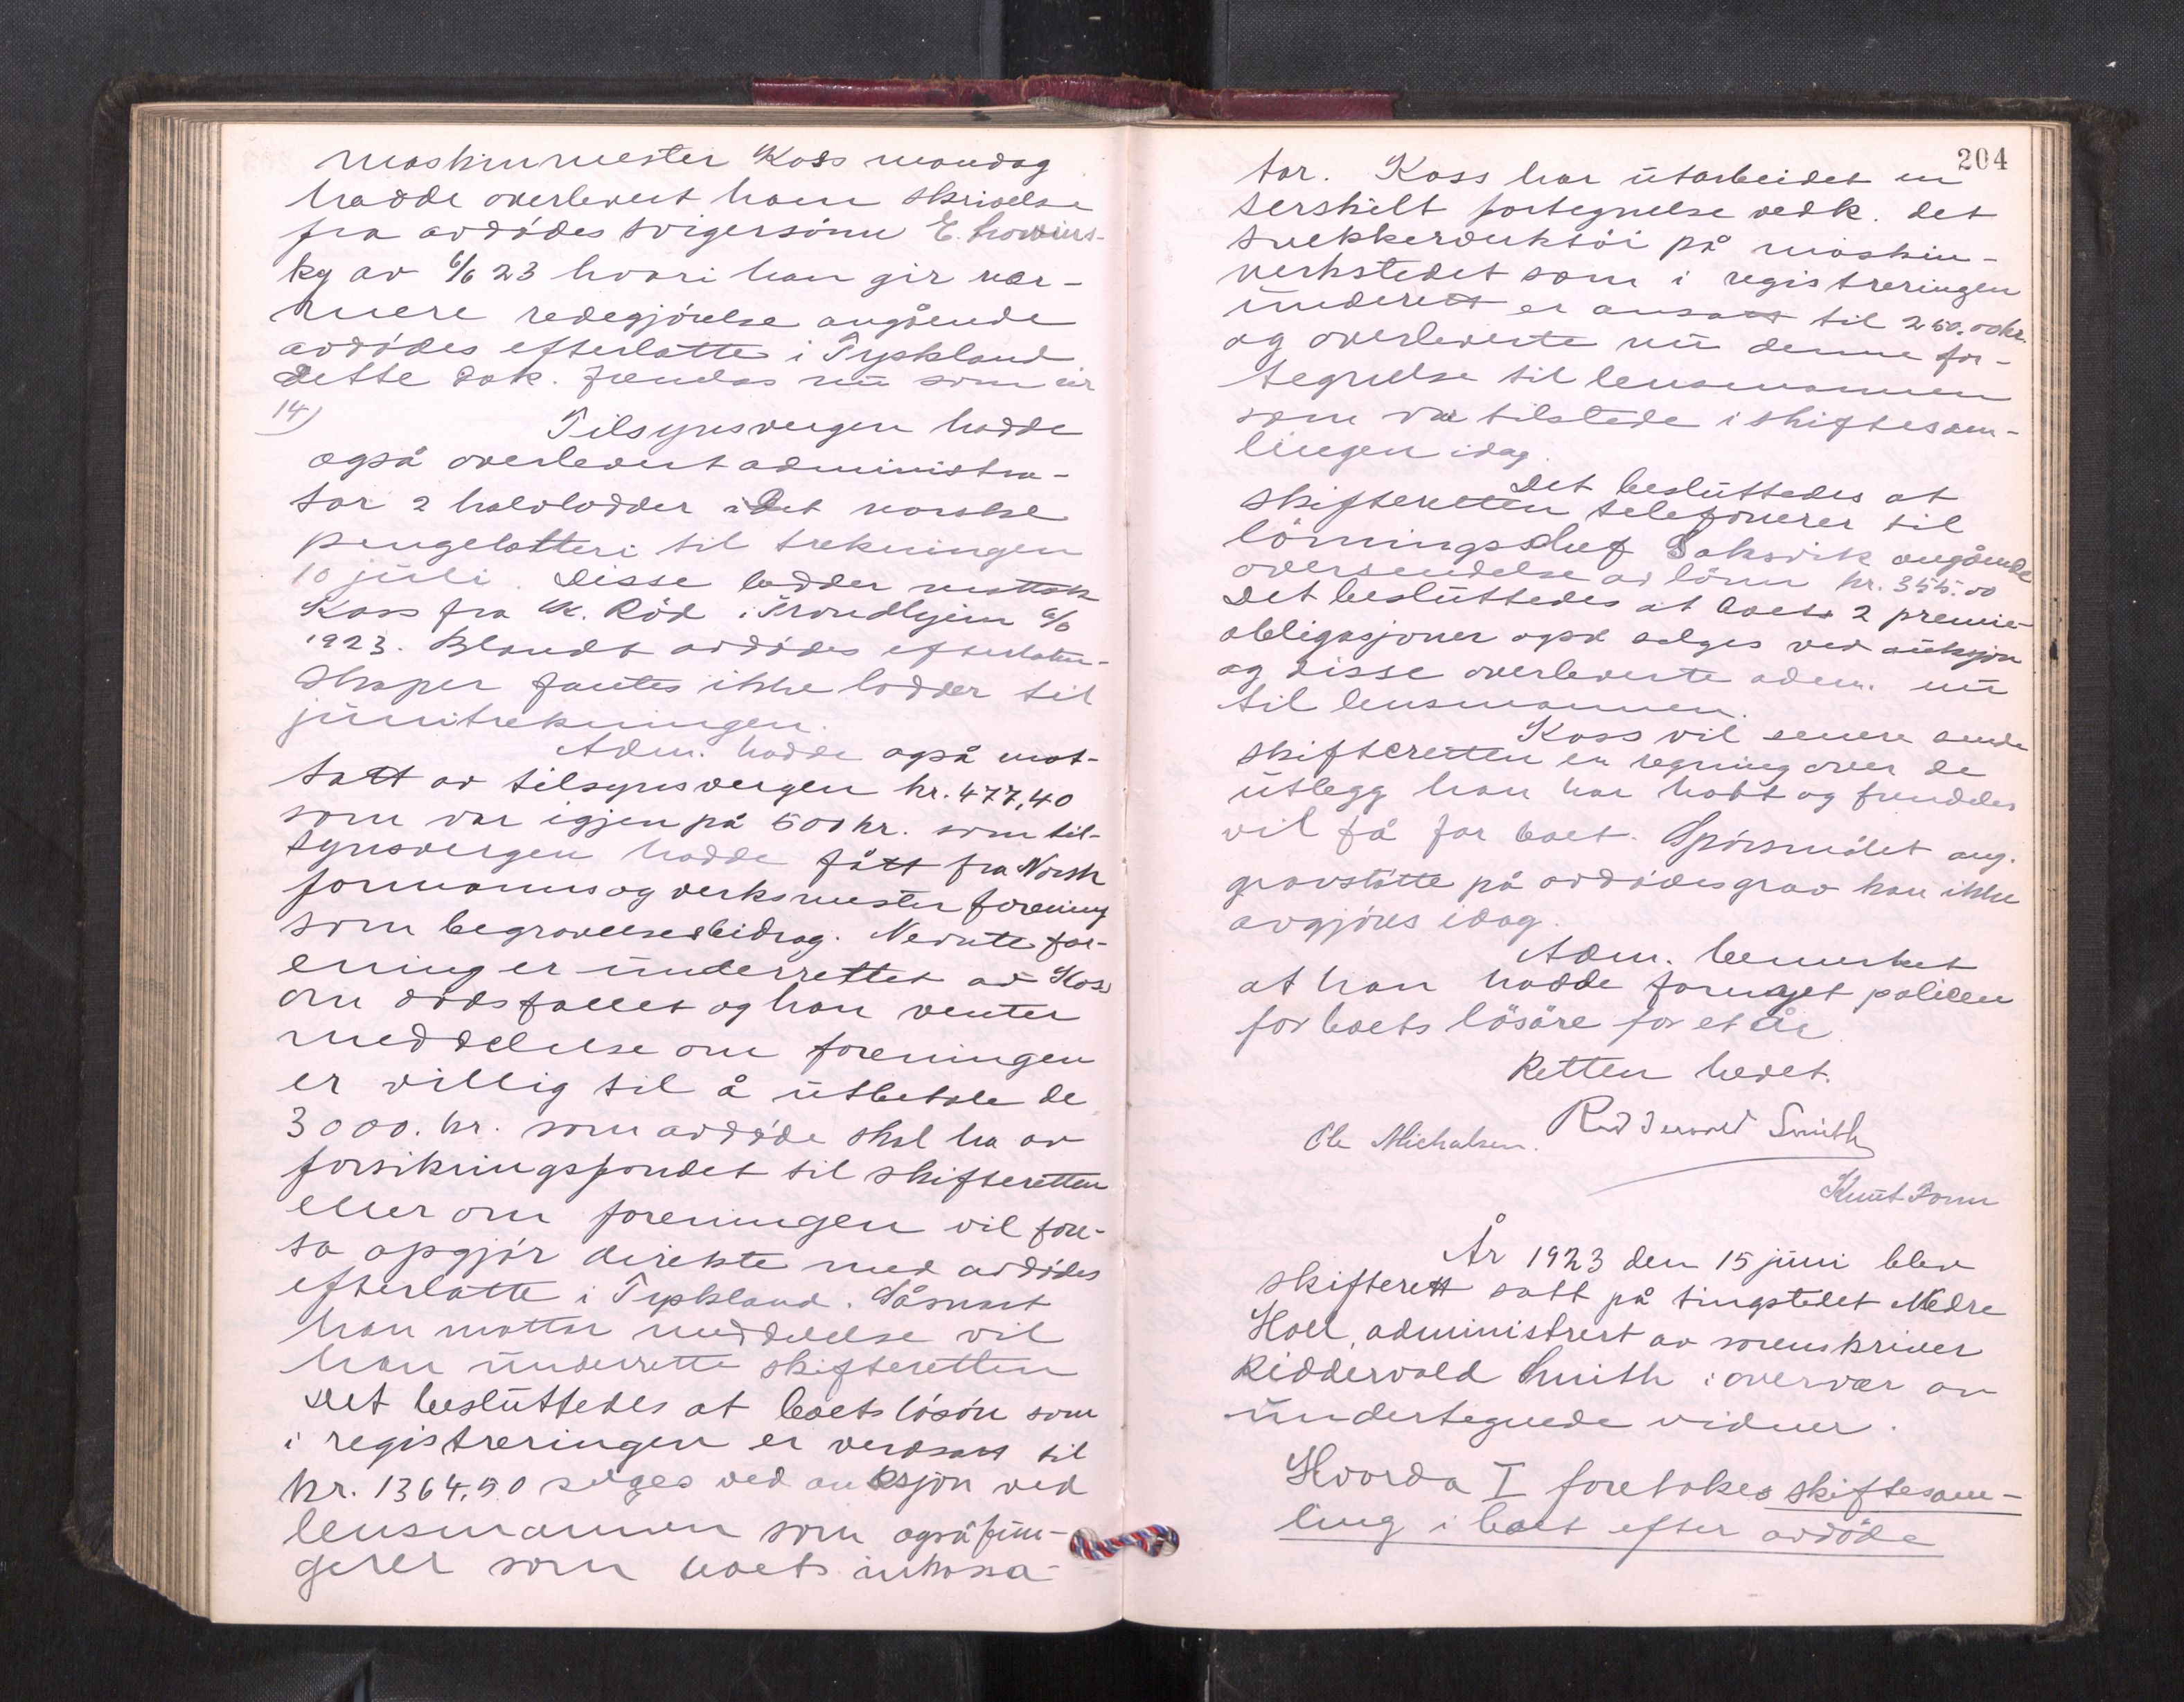 maskinmester Kass mandag
hadde overlevert ham skrivelse
fra avdödes svigersönn E.
kg av 6/6 23 hvori han gir nær-
mere redegjörelse angående
avdödes efterlatte i Tyskland
dette dok. fremlas nu som nr
14)
Tilsynsvergen hadde
også overlevert administra-
tor 2 halvlodder i det norske
pengelotteri til trekningen
10 juli. Disse lodder mottok
Kass fra M. Röd i Trondhjem 6/6
1923. Blandt avdödes efterlaten-
skaper fantes ikke lodder til
junitrekningen.
Adm. hadde også mot-
tatt av tilsynsvergen kr. 477,40
som var igjen på 500 kr. som til-
synsvergen hadde fått fra Norsk
formanns og verksmester forening
som begravelsesbidrag. Nevnte for-
ening er underrettet av Kass
om dödsfallet og han venter
meddelelse om foreningen
er villig til å utbetale de
3000. kr. som avdöde skal ha av
forsikringsfondet til skifteretten
eller om foreningen vil fore-
ta opgjör direkte med avdödes
efterlatte i Tyskland. Såsnart
han mottar meddelelse vil
han underrette skifteretten
Det besluttedes at boets lösöre som
i registreringen er verdsatt til
kr. 1364.90 selges ved auksjon ved
lensmannen som også fun-
gerer som boets inkassa-
204
tor. Kass har utarbeidet en
serskilt fortegnelse vedk. det
snekkerverktöi på maskin-
verkstedet som i registreringen
underett er ansatt til 250.00 kr.
og overleverte nu denne for-
tegnelse til lensmannen
som var tilstede i skiftesam-
lingen idag.
Det besluttedes at
skifteretten telefonerer til
lönningschef Saksvik angående
oversendelse av lönn kr. 355.00
Det besluttedes at boets 2 premie-
obligasjoner også selges ved auksjon
og disse overleverte adm. nu
til lensmannen.
Kass vil senere sende
skifteretten en regning over de
utlegg han har hatt og fremdeles
vil få for boet. Spörsmålet ang.
gravstötte på avdödes grav kan ikke
avgjöres idag.
Adm. bemerket
at han hadde fornyet polisen
for boets lösöre for et år.
Retten hevet.
Ole Michalsen. Riddervold Smith
Knut Tonn
År 1923 den 15 juni blev
skifterett satt på tingstedet Nedre
Hoel, administrert av sorenskriver
Riddervold Smith i overvær av
undertegnede vidner.
Hvorda I foretokes skiftesam-
ling i boet efter avdöde